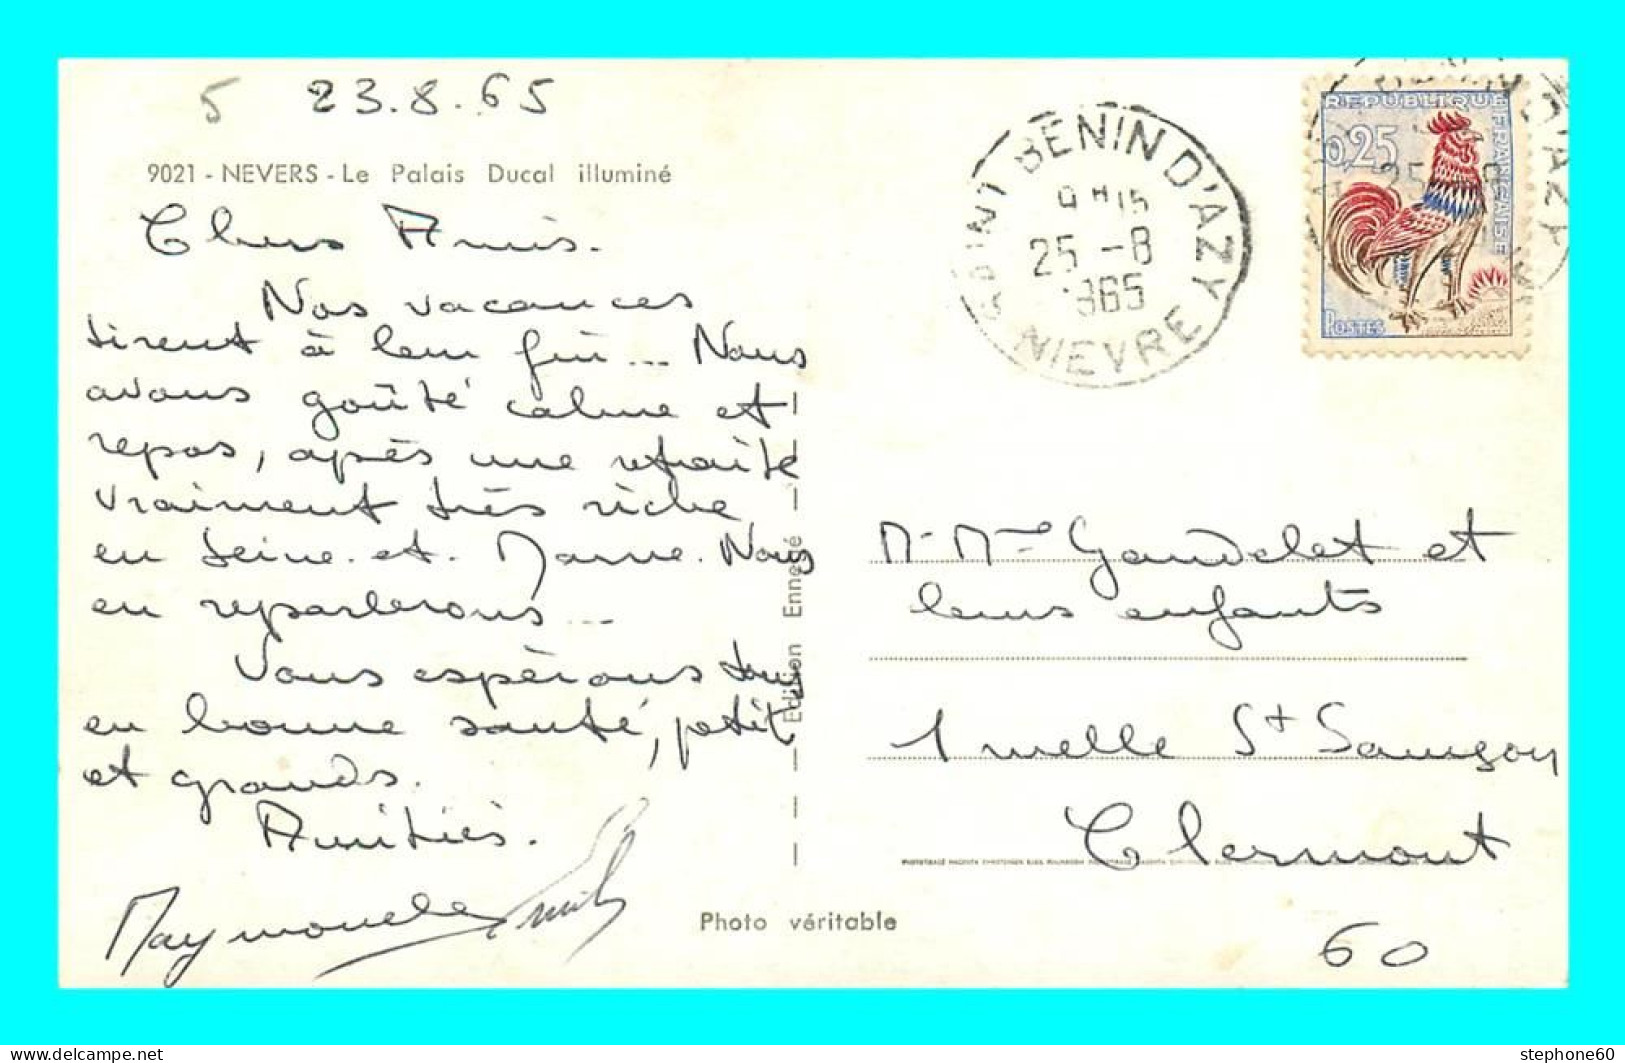 5 23.8.65
9021 - NEVERS - Le Palais Ducal illuminé
Chers Amis.
Nos vacances
tirent à leur fin... Nous
avons goûté calme et
repos, après une retraite
vraiment très riche,
en Seine-et-Marne. Nous
en reparlerons...
Vous espérons tous
en bonne santé, petits
et grands.
Amitiés.
Raymonde Emile
Edition Ennesse
Photo véritable
SAINT BENIN D'AZY
25 -8
1965
NIEVRE
REPUBLIQUE FRANÇAISE
0,25
POSTES
Mr Mme Gaudelet et
leurs enfants
1 ruelle St Samson
Clermont
60
stephone60